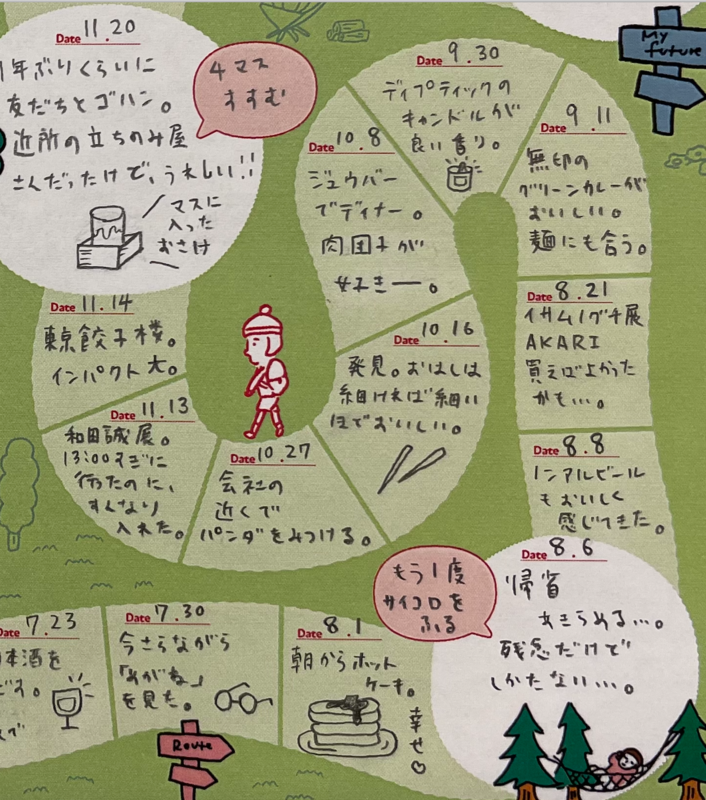 Date 7.23
本酒を
Date 7.30
今さらながら
「めがね」
を見た。
Route
Date 8.1
朝からホット
ケーキ。
幸せ
もう1度
サイコロを
ふる
Date 8.6
帰省
あきらめる…。
残念だけど
しかたない…。
Date 8.8
ノンアルビール
もおいしく
感じてきた。
Date 8.21
イサムノグチ展
AKARI
買えばよかった
かも…。
Date 9.11
無印の
グリーンカレーが
おいしい。
麺にも合う。
Date 9.30
ディプティックの
キャンドルが
良い香り。
Date 10.8
ジュウバー
でディナー。
肉団子が
好きー。
Date 10.16
発見。おはしは
細ければ細い
ほどおいしい。
Date 10.27
会社の
近くで
パンダをみつける。
Date 11.13
和田誠展。
13:00すぎに
行ったのに、
すんなり
入れた。
Date 11.14
東京餃子楼。
インパクト大。
Date 11.20
1年ぶりくらいに
友だちとゴハン。
近所の立ちのみ屋
さんだったけど、うれしい!!
マスに
入った
おさけ
4マス
すすむ
My
future